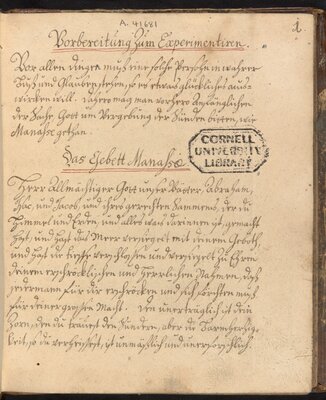 A. 41681
1.
Vorbereitung Zum Experimentiren.
Vor allen dingen muß eine solche Persohn in wahrer
Buß und Glauben stehen, so sie etwas glückliches aus-
wircken will. dahero mag man vorhero
der Sache, Gott um Vergebung der Sünden bitten, wie
Manasse gethan.
Das Gebett Manasse
CORNELL
UNIVERSITY
LIBRARY
Herr Allmächtiger Gott unser Vätter, Abraham,
Isac, und Jacob, und ihres gerechten Saamens, der du
Himmel und Erden, und alles was darinnen ist, gemacht
hast, und hast das Meer versiegelt mit deinem Geboth,
und hast die tieffe verschlossen und versiegelt zu Ehren
deinem erschröcklichen und herrlichen Nahmen, daß
jedermann für dir erschröcken und sich förchten muß
für deiner großen Macht. Den unerträglich ist dein
Zorn, den du träuest den Sündern, aber die Barmhertzig-
keit, so du verheissest, ist unmäßlich und unerforschlich.